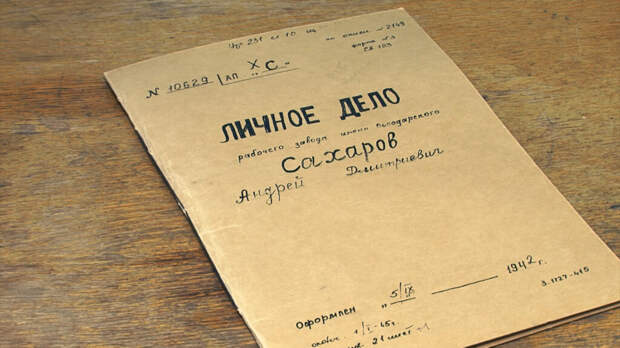 по описи № 2149
№ 10629 | АП Х "С"
ЛИЧНОЕ ДЕЛО
рабочего завода имени Володарского
Сахаров
Андрей Дмитриевич
Оформлен "5/IX 1942 г.
3.1127-415
1/I-45г.
21 лист